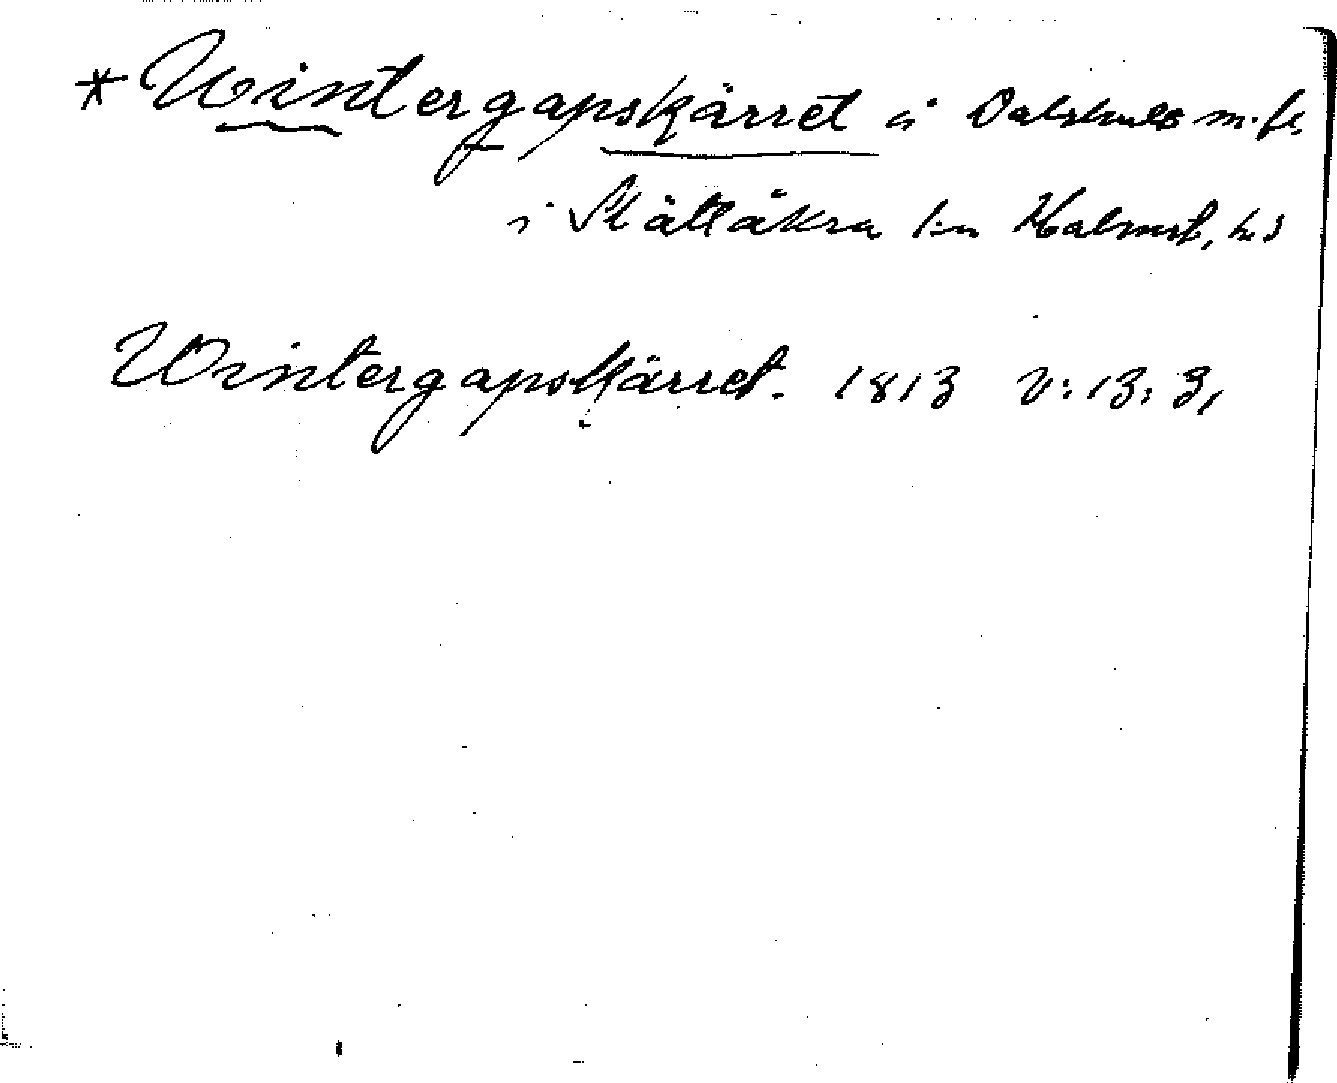 * Wintergapskärret å Dalshult m.fl.
i Slättåkra s:n Halmst. hd
Wintergapskärret. 1813 V: 13: 3,